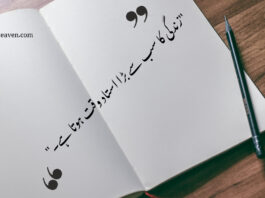 eaven.com
"زندگی کا سب سے بڑا استاد وقت ہوتا ہے۔"